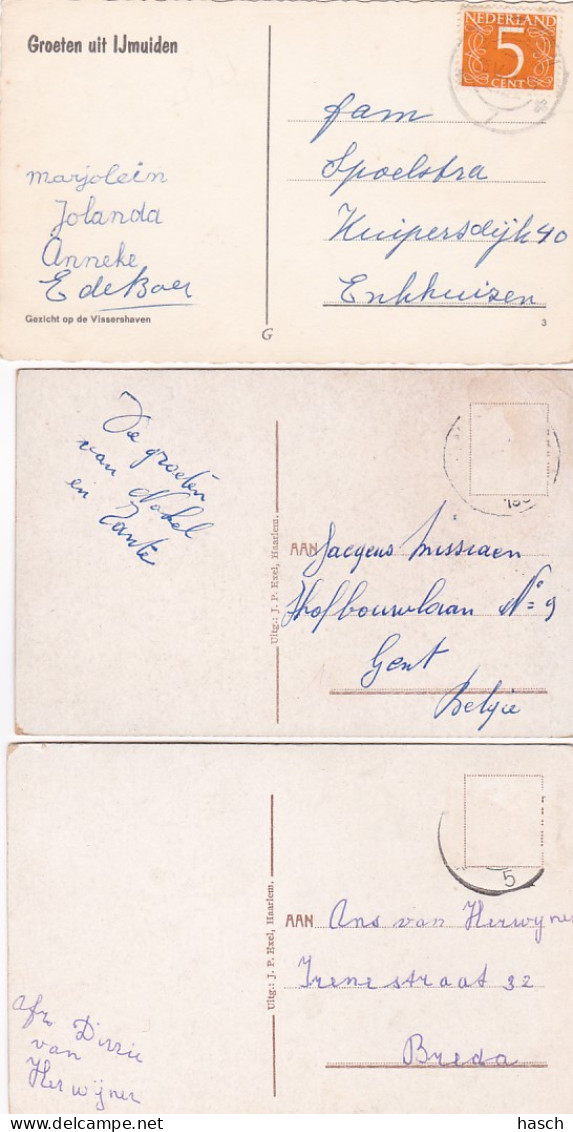 Groeten uit IJmuiden
NEDERLAND
5
CENT
marjolein
Jolanda
Anneke
E de Boer
Gezicht op de Vissershaven
G
fam
Spoelstra
Kuipersdijk 40
Enkhuizen
3
De groeten
van Nonkel
en Tante
Uitg.: J. P. Exel, Haarlem.
AAN Jacques Missiaen
Hofbouwlaan Nº 9
Gent
België
Uitg.: J. P. Exel, Haarlem.
5
AAN Ans van Herwijnen
Irenestraat 32
Breda
afz Dirrie
van
Herwijnen
hasch